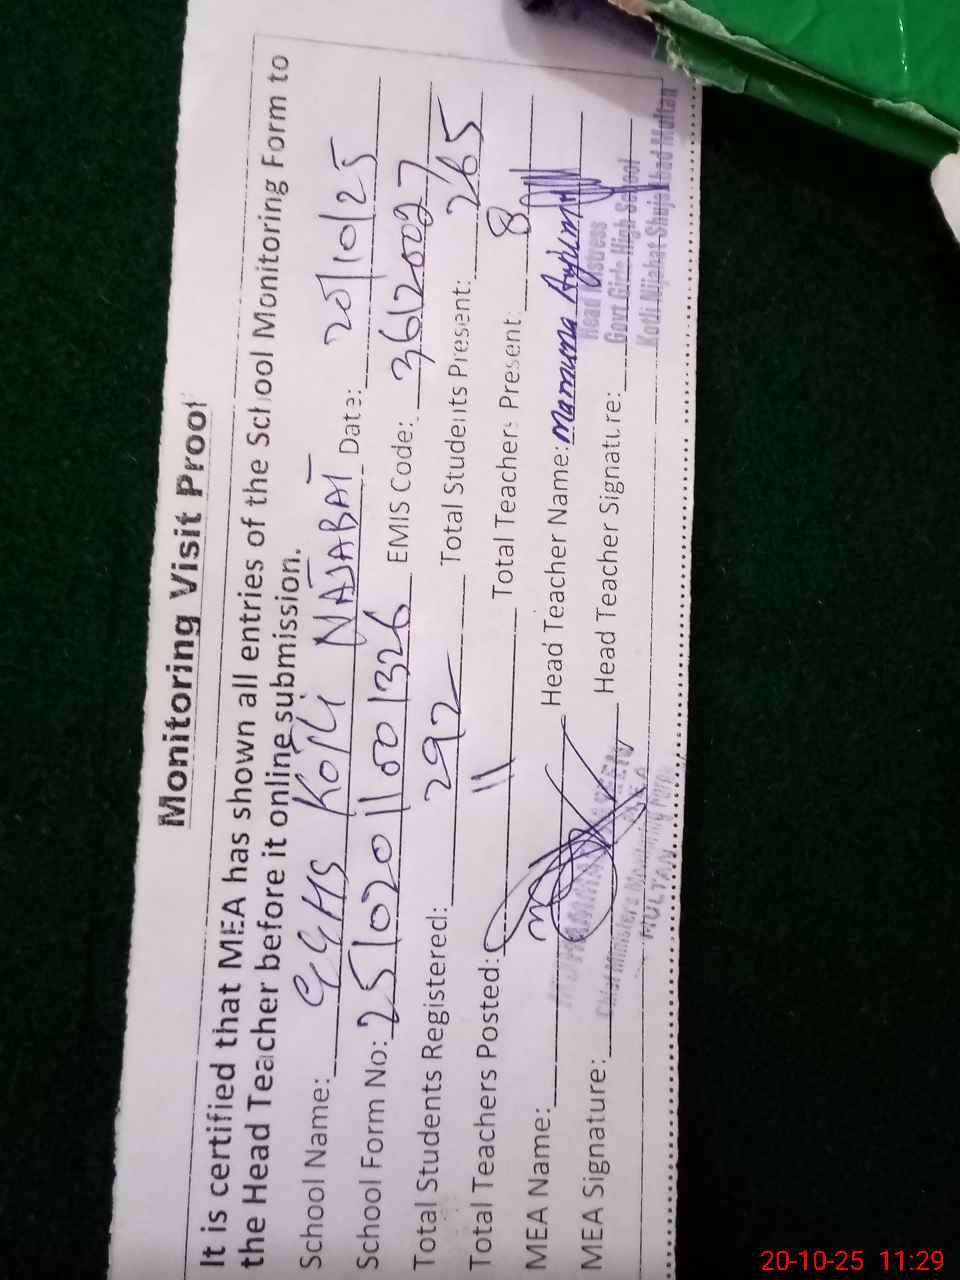 Monitoring Visit Proof
It is certified that MEA has shown all entries of the School Monitoring Form to
the Head Teacher before it online submission.
School Name: GGHS KOTLI NAJABAT Date: 20/10/25
School Form No: 25102011001326 EMIS Code: 36120027
Total Students Registered: 292 Total Students Present: 265
Total Teachers Posted: 11 Total Teachers Present: 8
MEA Name: Head Teacher Name: Mamuna Ayium
MEA Signature: Head Teacher Signature:
Head Mistress
Govt Girls High School
Kotli Nijabat Shujabad Multan
Chief Minister's Monitoring Force
MULTAN
20-10-25 11:29